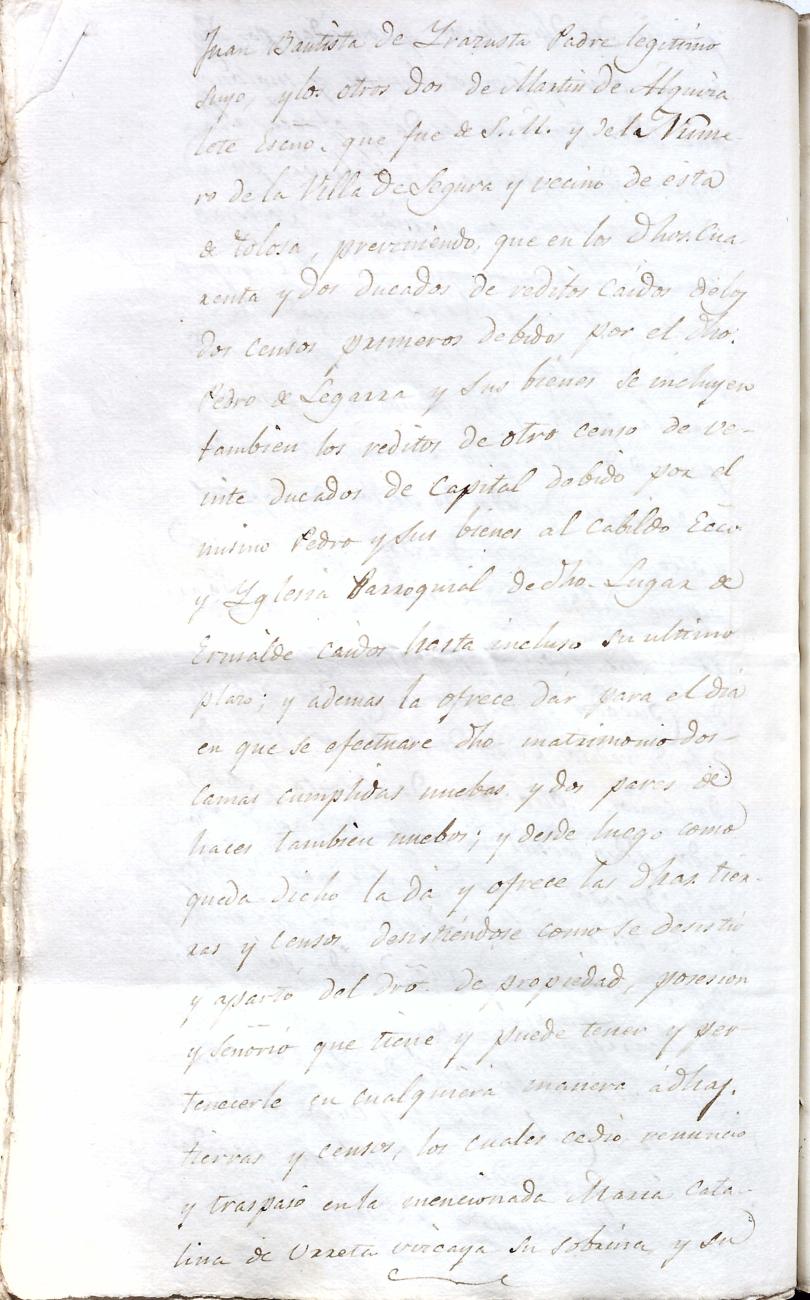 Juan Bautista de Yrazusta Padre legitimo
suyo, y los otros dos de Martin de Alquiza
lete Escño. que fue de S.M. y de la Nume-
ro de la Villa de Segura y vecino de esta
de Tolosa, previniendo, que en los dhos. Cua-
renta y dos ducados de reditos caidos de los
dos censos primeros debidos por el dho.
Pedro de Legarra y sus bienes se incluyen
tambien los reditos de otro censo de ve-
inte ducados de Capital debido por el
mismo Pedro y sus bienes al Cabildo Ecco.
y Yglesia Parroquial de dho. Lugar de
Ernialde caidos hasta incluso su ultimo
plazo; y ademas la ofrece dár para el dia
en que se efectuare dho matrimonio dos-
camas cumplidas nuebas y dos pares de
haces tambien nuebos; y desde luego como
queda dicho la dá y ofrece las dhas. tier-
ras y censos desistiéndose como se desistió
y apartó del dro. de propiedad, posesion
y señorió que tiene y puede tener y per-
tenecerle en cualquiera manera á dhas.
tierras y censos, los cuales cedió renunció
y traspasó en la mencionada Maria Cata-
lina de Urreta vizcaya su sobrina, y su